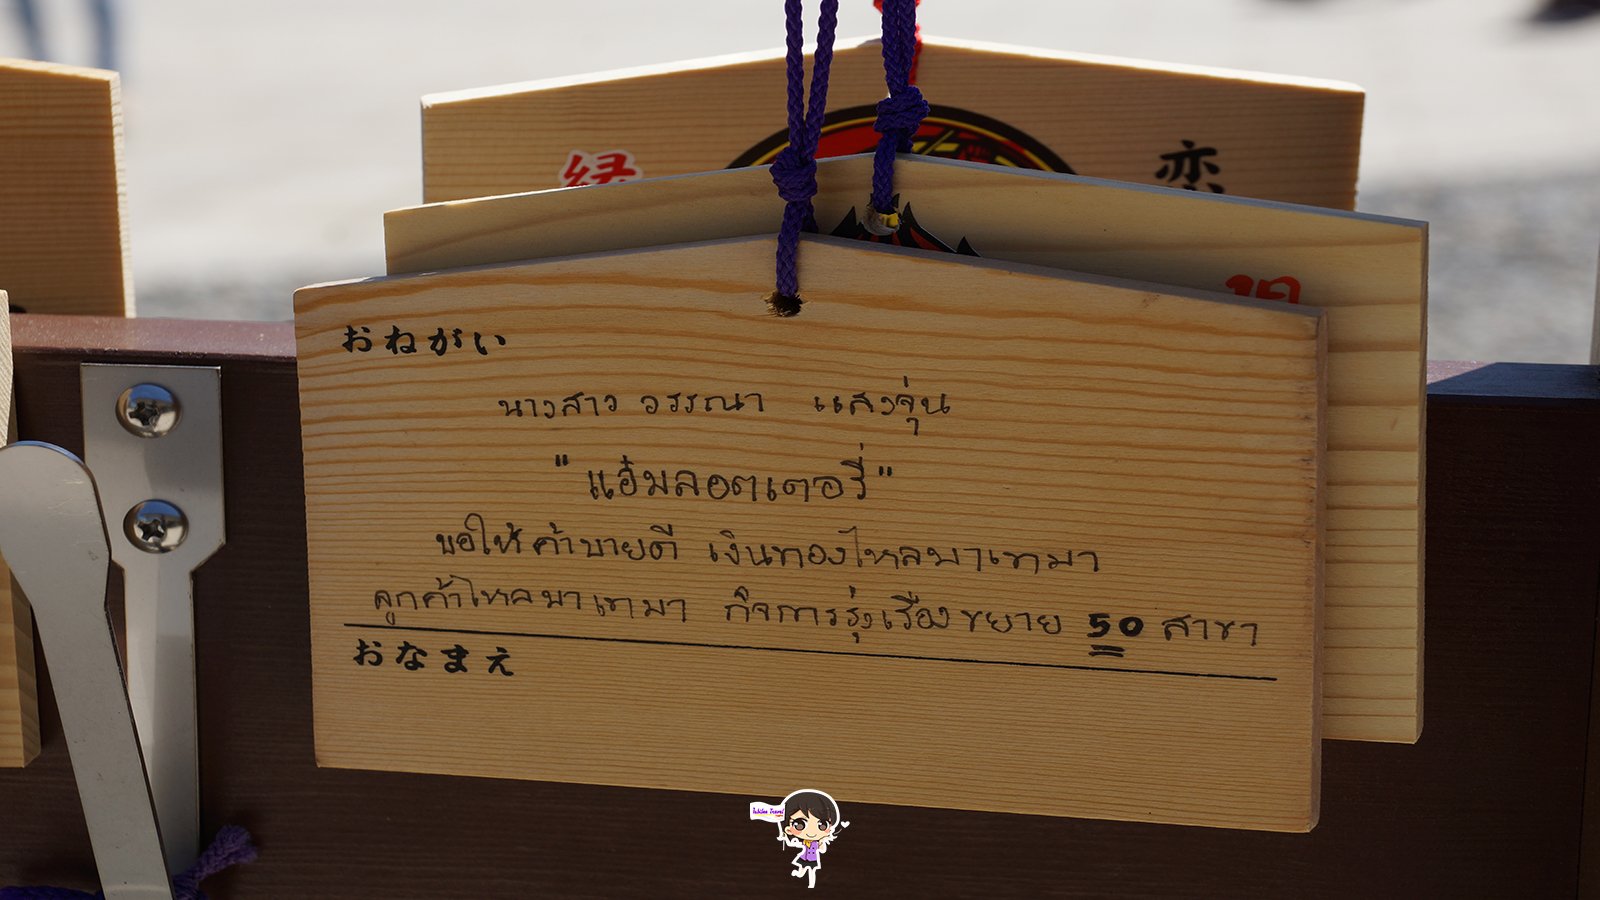 縁
恋
おねがい
นางสาว วรรณา แสงจุ่น
"แอ๋มลอตเตอรี่"
ขอให้ค้าขายดี เงินทองไหลมาเทมา
ลูกค้าไหลมาเทมา กิจการรุ่งเรืองขยาย 50 สาขา
おなまえ